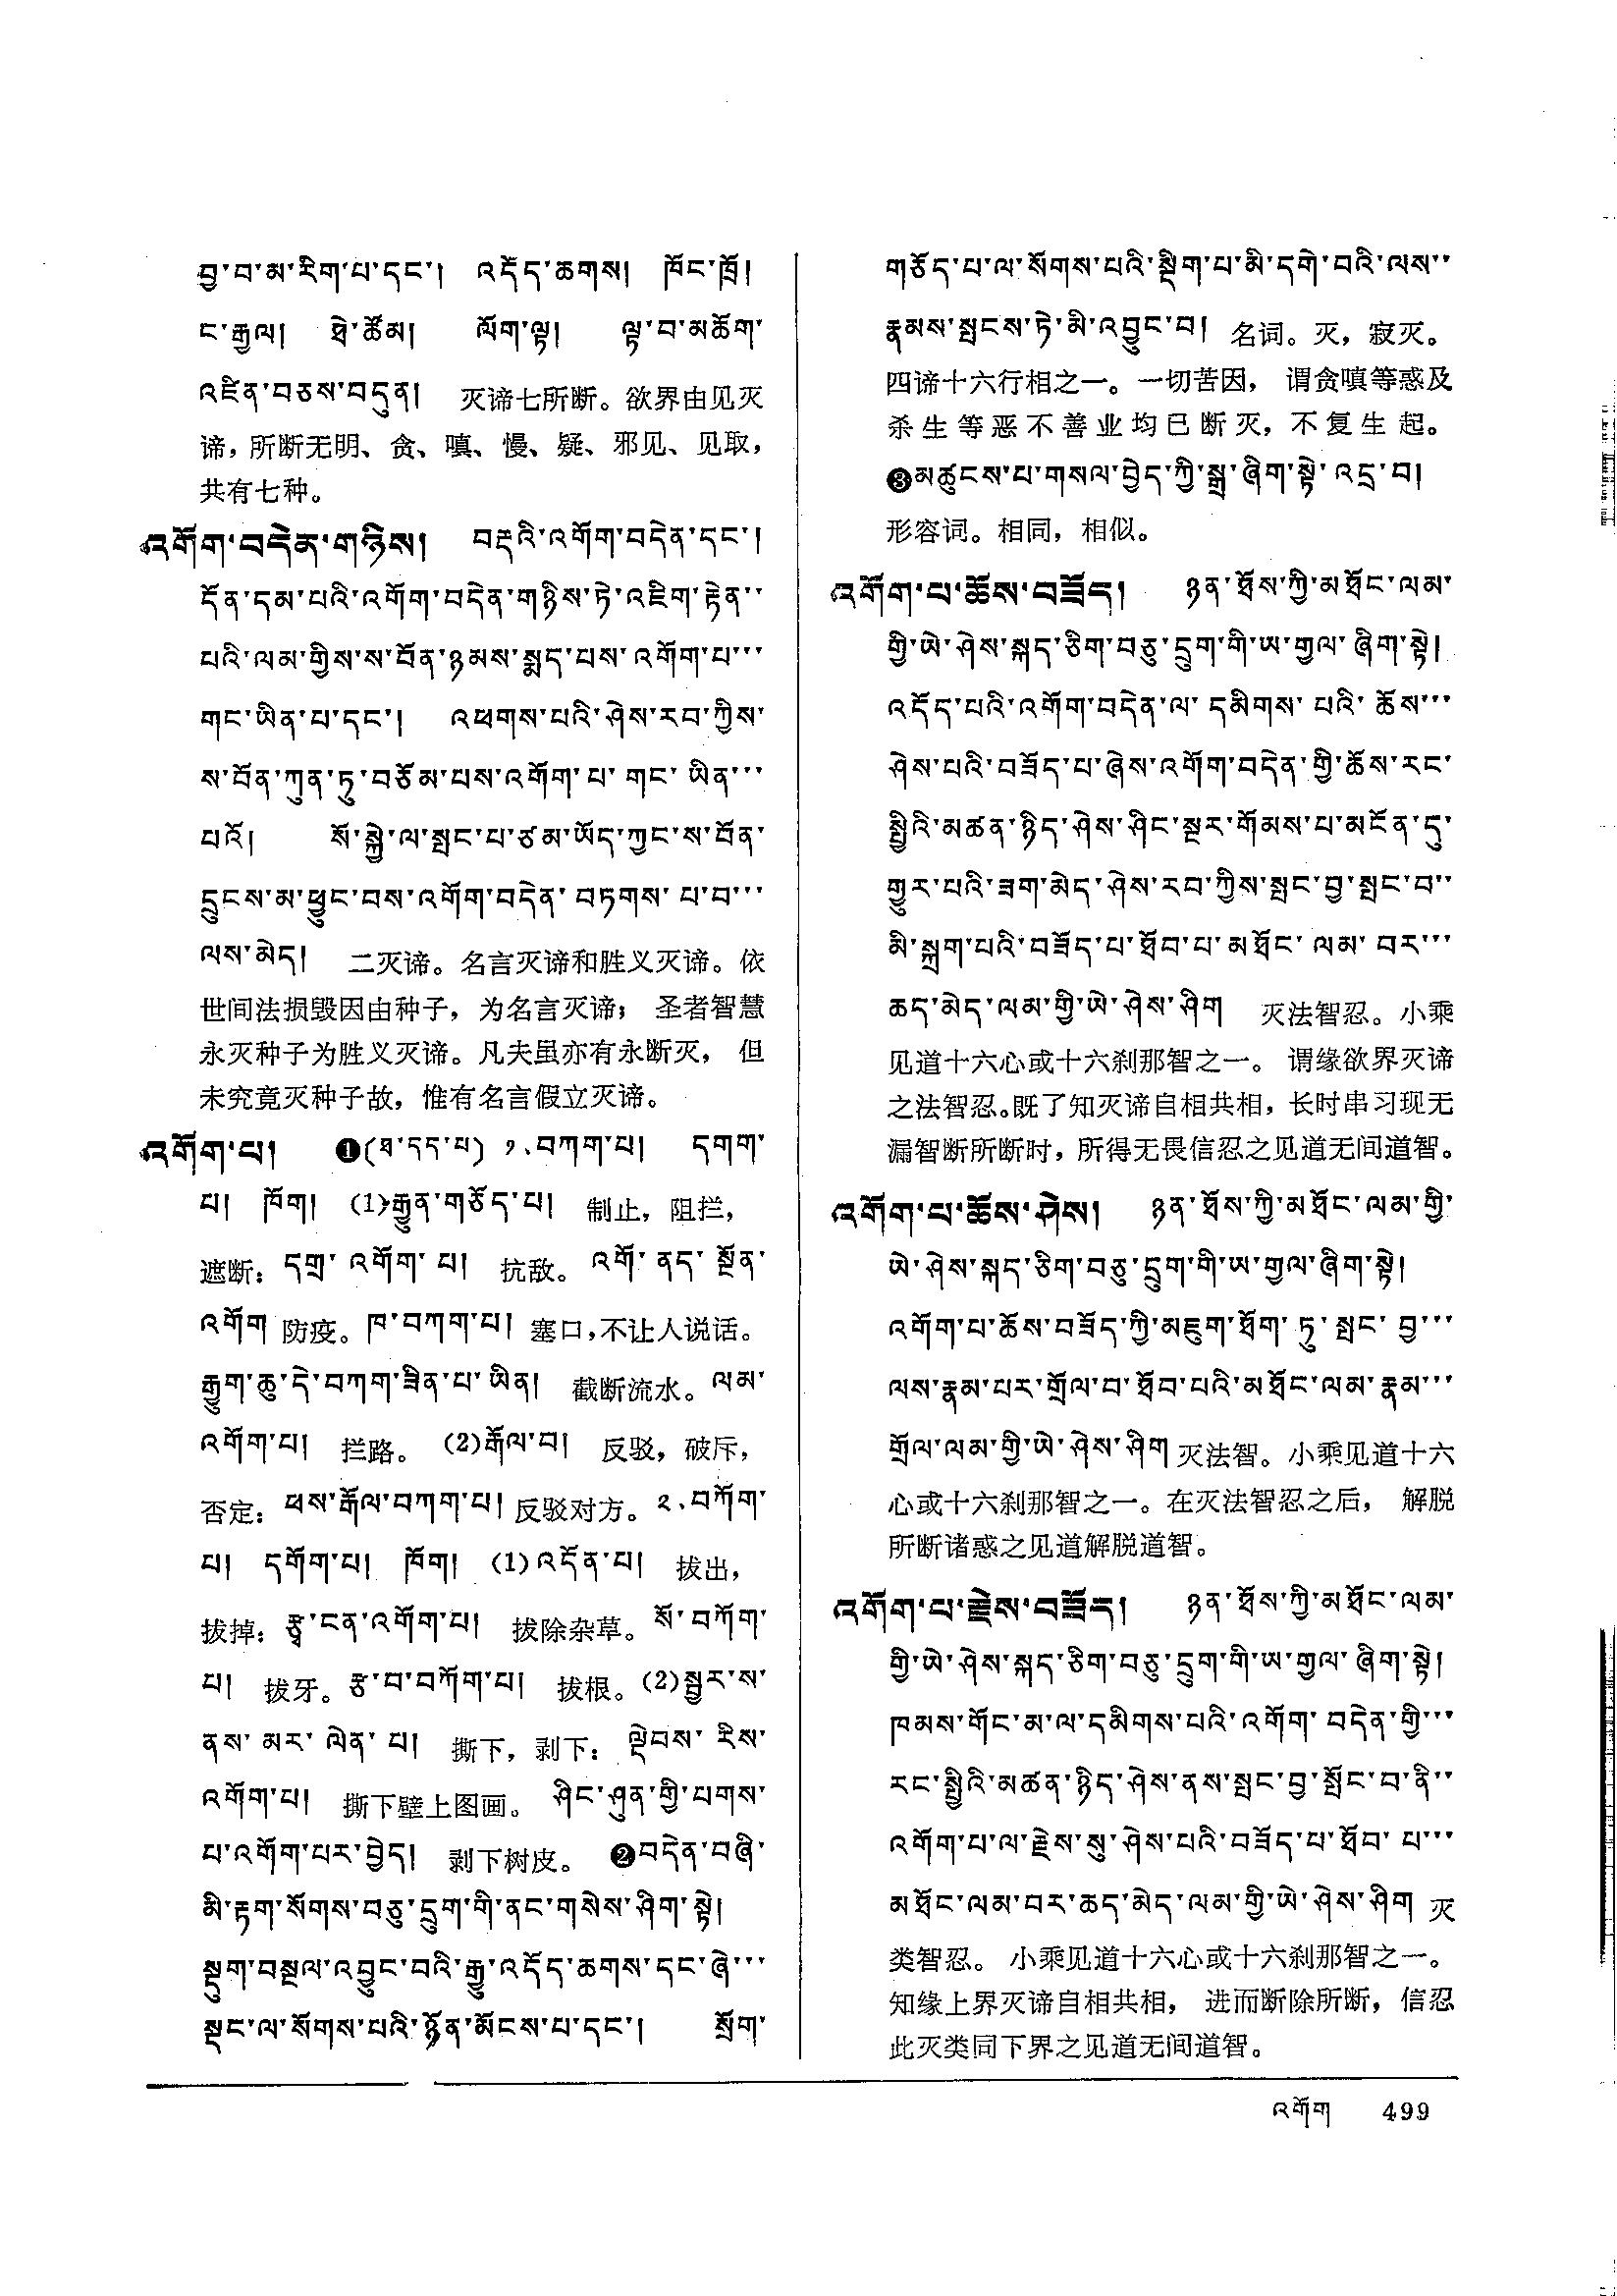 བྱ་བ་མ་རིག་པ་དང་། འདོད་ཆགས། ཁོང་ཁྲོ།
ང་རྒྱལ། ཐེ་ཚོམ། ལོག་ལྟ། ལྟ་བ་མཆོག་
འཛིན་བཅས་བདུན། 灭谛七所断。欲界由见灭
谛，所断无明、贪、嗔、慢、疑、邪见、见取，
共有七种。
འགོག་བདེན་གཉིས། བརྡའི་འགོག་བདེན་དང་།
དོན་དམ་པའི་འགོག་བདེན་གཉིས་ཏེ་འཇིག་རྟེན་་
པའི་ལམ་གྱིས་ས་བོན་ཉམས་སྨད་པས་འགོག་པ་་་
གང་ཡིན་པ་དང་། འཕགས་པའི་ཤེས་རབ་ཀྱིས་
ས་བོན་ཀུན་ཏུ་བཅོམ་པས་འགོག་པ་གང་ཡིན་་་
པའོ། སོ་སྐྱེ་ལ་སྤང་པ་ཙམ་ཡོད་ཀྱང་ས་བོན་
དྲུངས་མ་ཕྱུང་བས་འགོག་བདེན་བཏགས་པ་བ་་་
ལས་མེད། 二灭谛。名言灭谛和胜义灭谛。依
世间法损毁因由种子，为名言灭谛；圣者智慧
永灭种子为胜义灭谛。凡夫虽亦有永断灭，但
未究竟灭种子故，惟有名言假立灭谛。
འགོག་པ། ❶(ཐ་དད་པ) ༡.བཀག་པ། དགག་
པ། ཁོག། (1)རྒྱུན་གཅོད་པ། 制止，阻拦，
遮断：དགྲ་འགོག་པ། 抗敌。འགོ་ནད་སྔོན་
འགོག 防疫。ཁ་བཀག་པ། 塞口，不让人说话。
རྒྱུག་ཆུ་དེ་བཀག་ཟིན་པ་ཡིན། 截断流水。ལམ་
འགོག་པ། 拦路。(2)རྒོལ་བ། 反驳，破斥，
否定：ཕས་རྒོལ་བཀག་པ། 反驳对方。༢.བཀོག་
པ། དགོག་པ། ཁོག། (1)འདོན་པ། 拔出，
拔掉：རྩྭ་ངན་འགོག་པ། 拔除杂草。སོ་བཀོག་
པ། 拔牙。རྩ་བ་བཀོག་པ། 拔根。(2)སྦྱར་ས་
ནས་མར་ལེན་པ། 撕下，剥下：ལྡེབས་རིས་
འགོག་པ། 撕下壁上图画。ཤིང་ཤུན་གྱི་པགས་
པ་འགོག་པར་བྱེད། 剥下树皮。❷བདེན་བཞི་
མི་རྟག་སོགས་བཅུ་དྲུག་གི་ནང་གསེས་ཤིག་སྟེ།
སྡུག་བསྔལ་འབྱུང་བའི་རྒྱུ་འདོད་ཆགས་དང་ཞེ་་་
སྡང་ལ་སོགས་པའི་ཉོན་མོངས་པ་དང་། སྲོག་
གཅོད་པ་ལ་སོགས་པའི་སྡིག་པ་མི་དགེ་བའི་ལས་་
རྣམས་སྤངས་ཏེ་མི་འབྱུང་བ། 名词。灭，寂灭。
四谛十六行相之一。一切苦因，谓贪嗔等惑及
杀生等恶不善业均已断灭，不复生起。
❸མཚུངས་པ་གསལ་བྱེད་ཀྱི་སྒྲ་ཞིག་སྟེ་འདྲ་བ།
形容词。相同，相似。
འགོག་པ་ཆོས་བཟོད། ཉན་ཐོས་ཀྱི་མཐོང་ལམ་
གྱི་ཡེ་ཤེས་སྐད་ཅིག་བཅུ་དྲུག་གི་ཡ་གྱལ་ཞིག་སྟེ།
འདོད་པའི་འགོག་བདེན་ལ་དམིགས་པའི་ཆོས་་་
ཤེས་པའི་བཟོད་པ་ཞེས་འགོག་བདེན་གྱི་ཆོས་རང་
སྤྱིའི་མཚན་ཉིད་ཤེས་ཤིང་སྔར་གོམས་པ་མངོན་དུ་
གྱུར་པའི་ཟག་མེད་ཤེས་རབ་ཀྱིས་སྤང་བྱ་སྤང་བ་་
མི་སྐྲག་པའི་བཟོད་པ་ཐོབ་པ་མཐོང་ལམ་བར་་་
ཆད་མེད་ལམ་གྱི་ཡེ་ཤེས་ཤིག 灭法智忍。小乘
见道十六心或十六刹那智之一。谓缘欲界灭谛
之法智忍。既了知灭谛自相共相，长时串习现无
漏智断所断时，所得无畏信忍之见道无间道智。
འགོག་པ་ཆོས་ཤེས། ཉན་ཐོས་ཀྱི་མཐོང་ལམ་གྱི་
ཡེ་ཤེས་སྐད་ཅིག་བཅུ་དྲུག་གི་ཡ་གྱལ་ཞིག་སྟེ།
འགོག་པ་ཆོས་བཟོད་ཀྱི་མཇུག་ཐོག་ཏུ་སྤང་བྱ་་་
ལས་རྣམ་པར་གྲོལ་བ་ཐོབ་པའི་མཐོང་ལམ་རྣམ་་་
གྲོལ་ལམ་གྱི་ཡེ་ཤེས་ཤིག 灭法智。小乘见道十六
心或十六刹那智之一。在灭法智忍之后，解脱
所断诸惑之见道解脱道智。
འགོག་པ་རྗེས་བཟོད། ཉན་ཐོས་ཀྱི་མཐོང་ལམ་
གྱི་ཡེ་ཤེས་སྐད་ཅིག་བཅུ་དྲུག་གི་ཡ་གྱལ་ཞིག་སྟེ།
ཁམས་གོང་མ་ལ་དམིགས་པའི་འགོག་བདེན་གྱི་་་
རང་སྤྱིའི་མཚན་ཉིད་ཤེས་ནས་སྤང་བྱ་སྤོང་བ་ནི་་
འགོག་པ་ལ་རྗེས་སུ་ཤེས་པའི་བཟོད་པ་ཐོབ་པ་་་
མཐོང་ལམ་བར་ཆད་མེད་ལམ་གྱི་ཡེ་ཤེས་ཤིག 灭
类智忍。小乘见道十六心或十六刹那智之一。
知缘上界灭谛自相共相，进而断除所断，信忍
此灭类同下界之见道无间道智。
འགོག 499